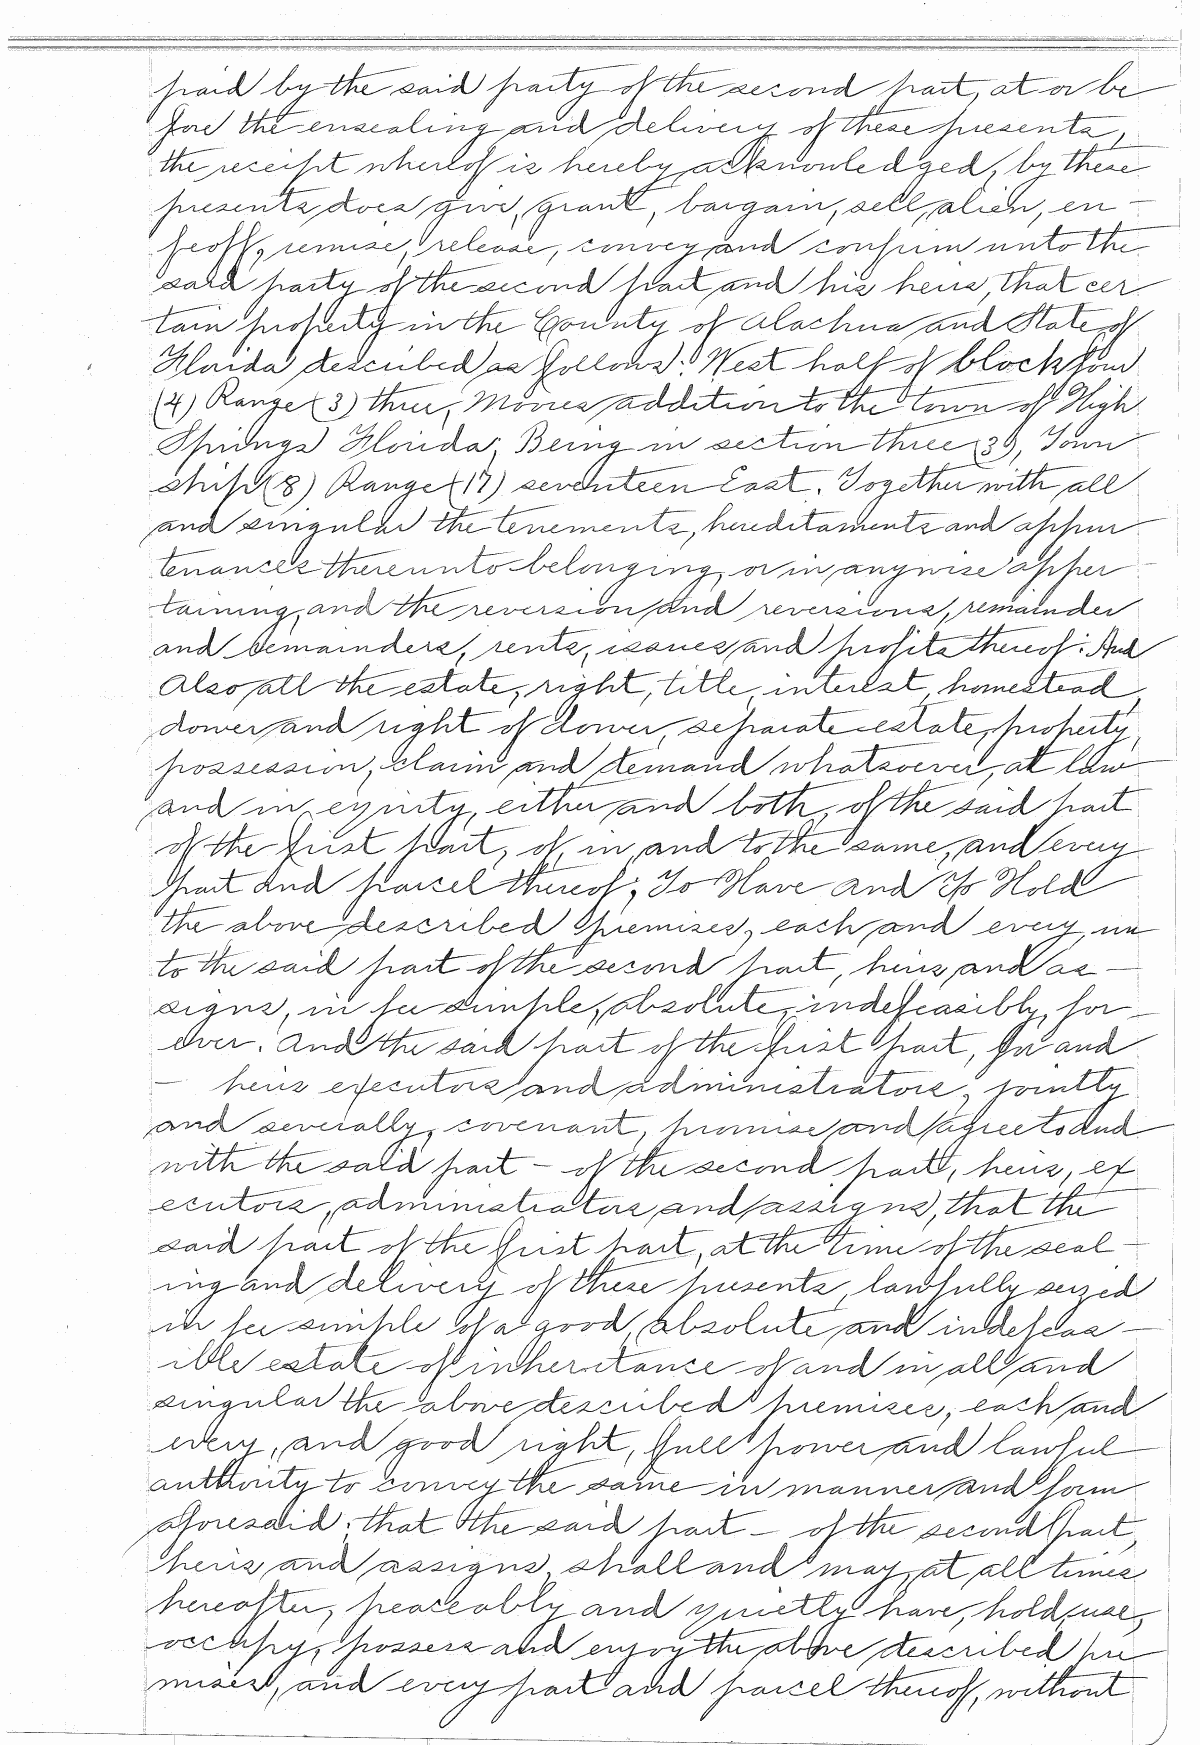 paid by the said party of the second part, at or be
fore the ensealing and delivery of these presents,
the receipt whereof is hereby acknowledged, by these
presents does give, grant, bargain, sell, alien, en-
feoff, remise, release, convey and confirm unto the
said party of the second part and his heirs, that cer
tain property in the County of Alachua and State of
Florida described as follows: West half of block four
(4) Range (3) three, Moores addition to the town of High
Springs Florida, Being in section three (3), Town
ship (8) Range (17) seventeen East. Together with all
and singular the tenements, hereditaments and appur
tenances thereunto belonging, or in anywise apper
taining, and the reversion and reversions, remainder
and remainders, rents, issues and profits thereof: And
Also all the estate, right, title, interest, homestead,
dower and right of dower, separate estate, property,
possession, claim and demand whatsoever, at law
and in equity, either and both, of the said part
of the first part, of, in and to the same, and every
part and parcel thereof; To Have and To Hold
the above described premises, each and every, un
to the said part of the second part, heirs and as-
signs, in fee simple, absolute, indefeasibly, for-
ever. And the said part of the first part, for and
- heirs executors and administrators, jointly
and severally, covenant, promise and agree to and
with the said part - of the second part, heirs, ex
ecutors, administrators and assigns, that the
said part of the first part, at the time of the seal-
ing and delivery of these presents, lawfully seized
in fee simple of a good, absolute and indefeas-
ible estate of inheritance of and in all and
singular the above described premises, each and
every, and good right, full power and lawful
authority to convey the same in manner and form
aforesaid; that the said part - of the second part,
heirs and assigns, shall and may, at all times
hereafter, peaceably and quietly have, hold, use,
occupy, possess and enjoy the above described pre
mises, and every part and parcel thereof, without